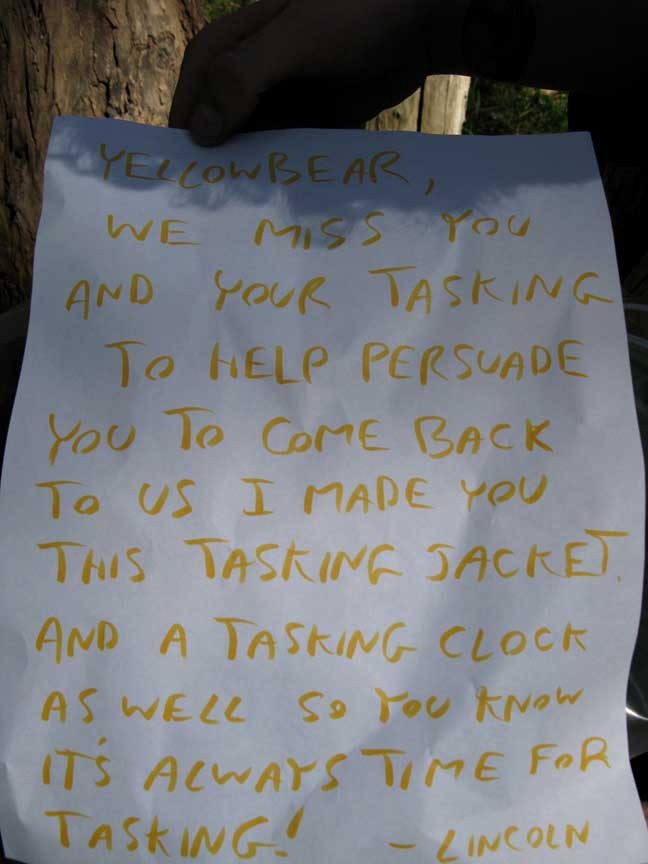 YELLOWBEAR,
WE MISS YOU
AND YOUR TASKING
TO HELP PERSUADE
YOU TO COME BACK
TO US I MADE YOU
THIS TASKING JACKET.
AND A TASKING CLOCK
AS WELL SO YOU KNOW
IT'S ALWAYS TIME FOR
TASKING! - LINCOLN